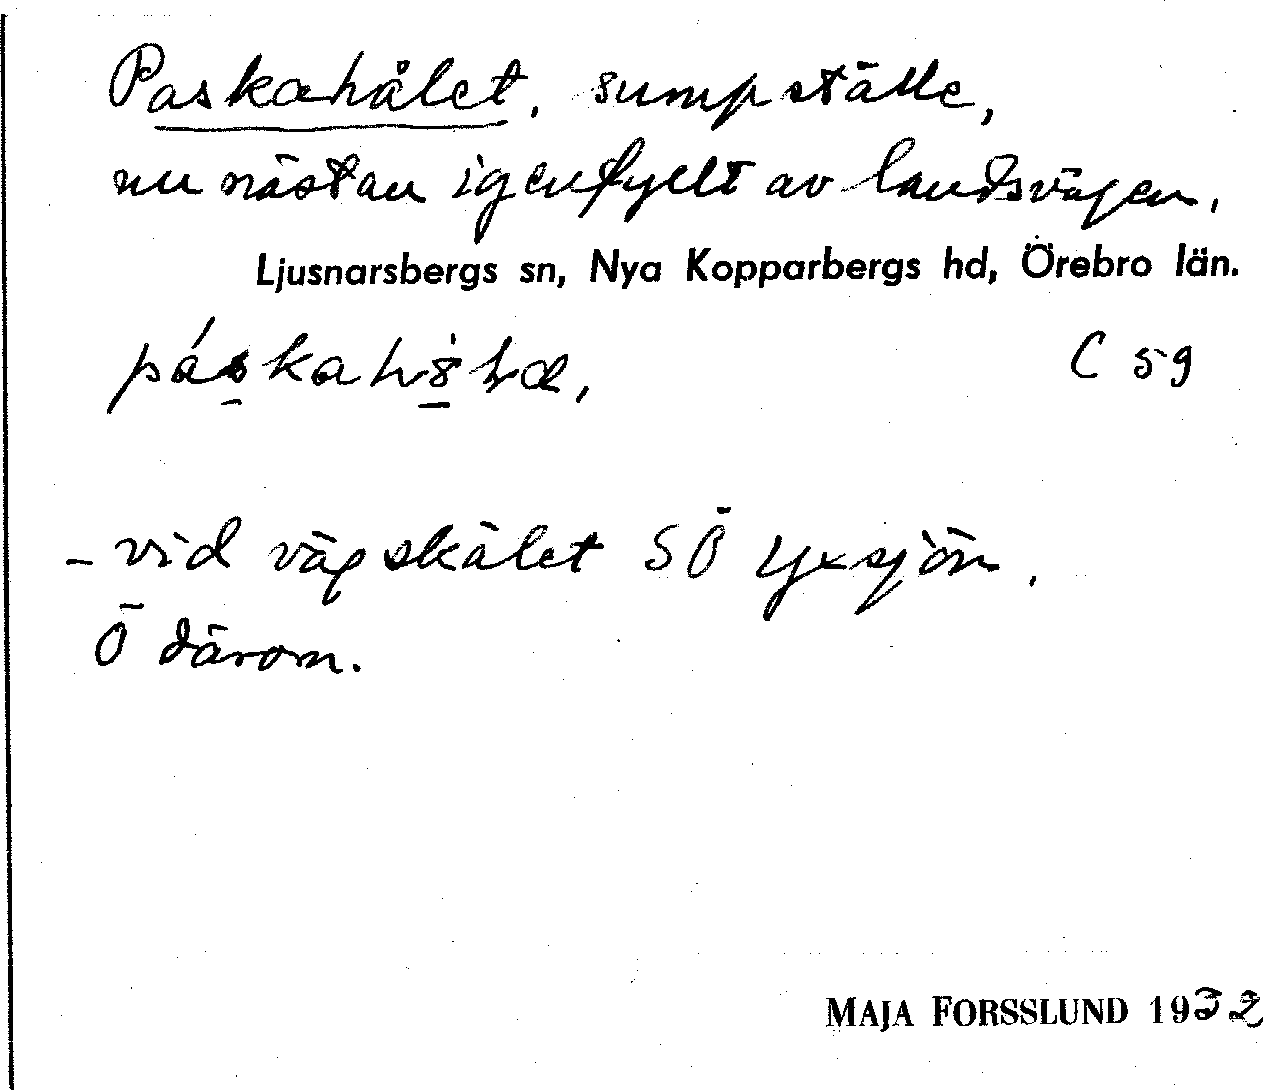 Paskahålet, sumpställe,
nu nästan igenfyllt av landsvägen.
Ljusnarsbergs sn, Nya Kopparbergs hd, Örebro län.
C 59
– vid vägskälet SÖ Yxsjön.
Ö därom.
MAJA FORSSLUND 1932